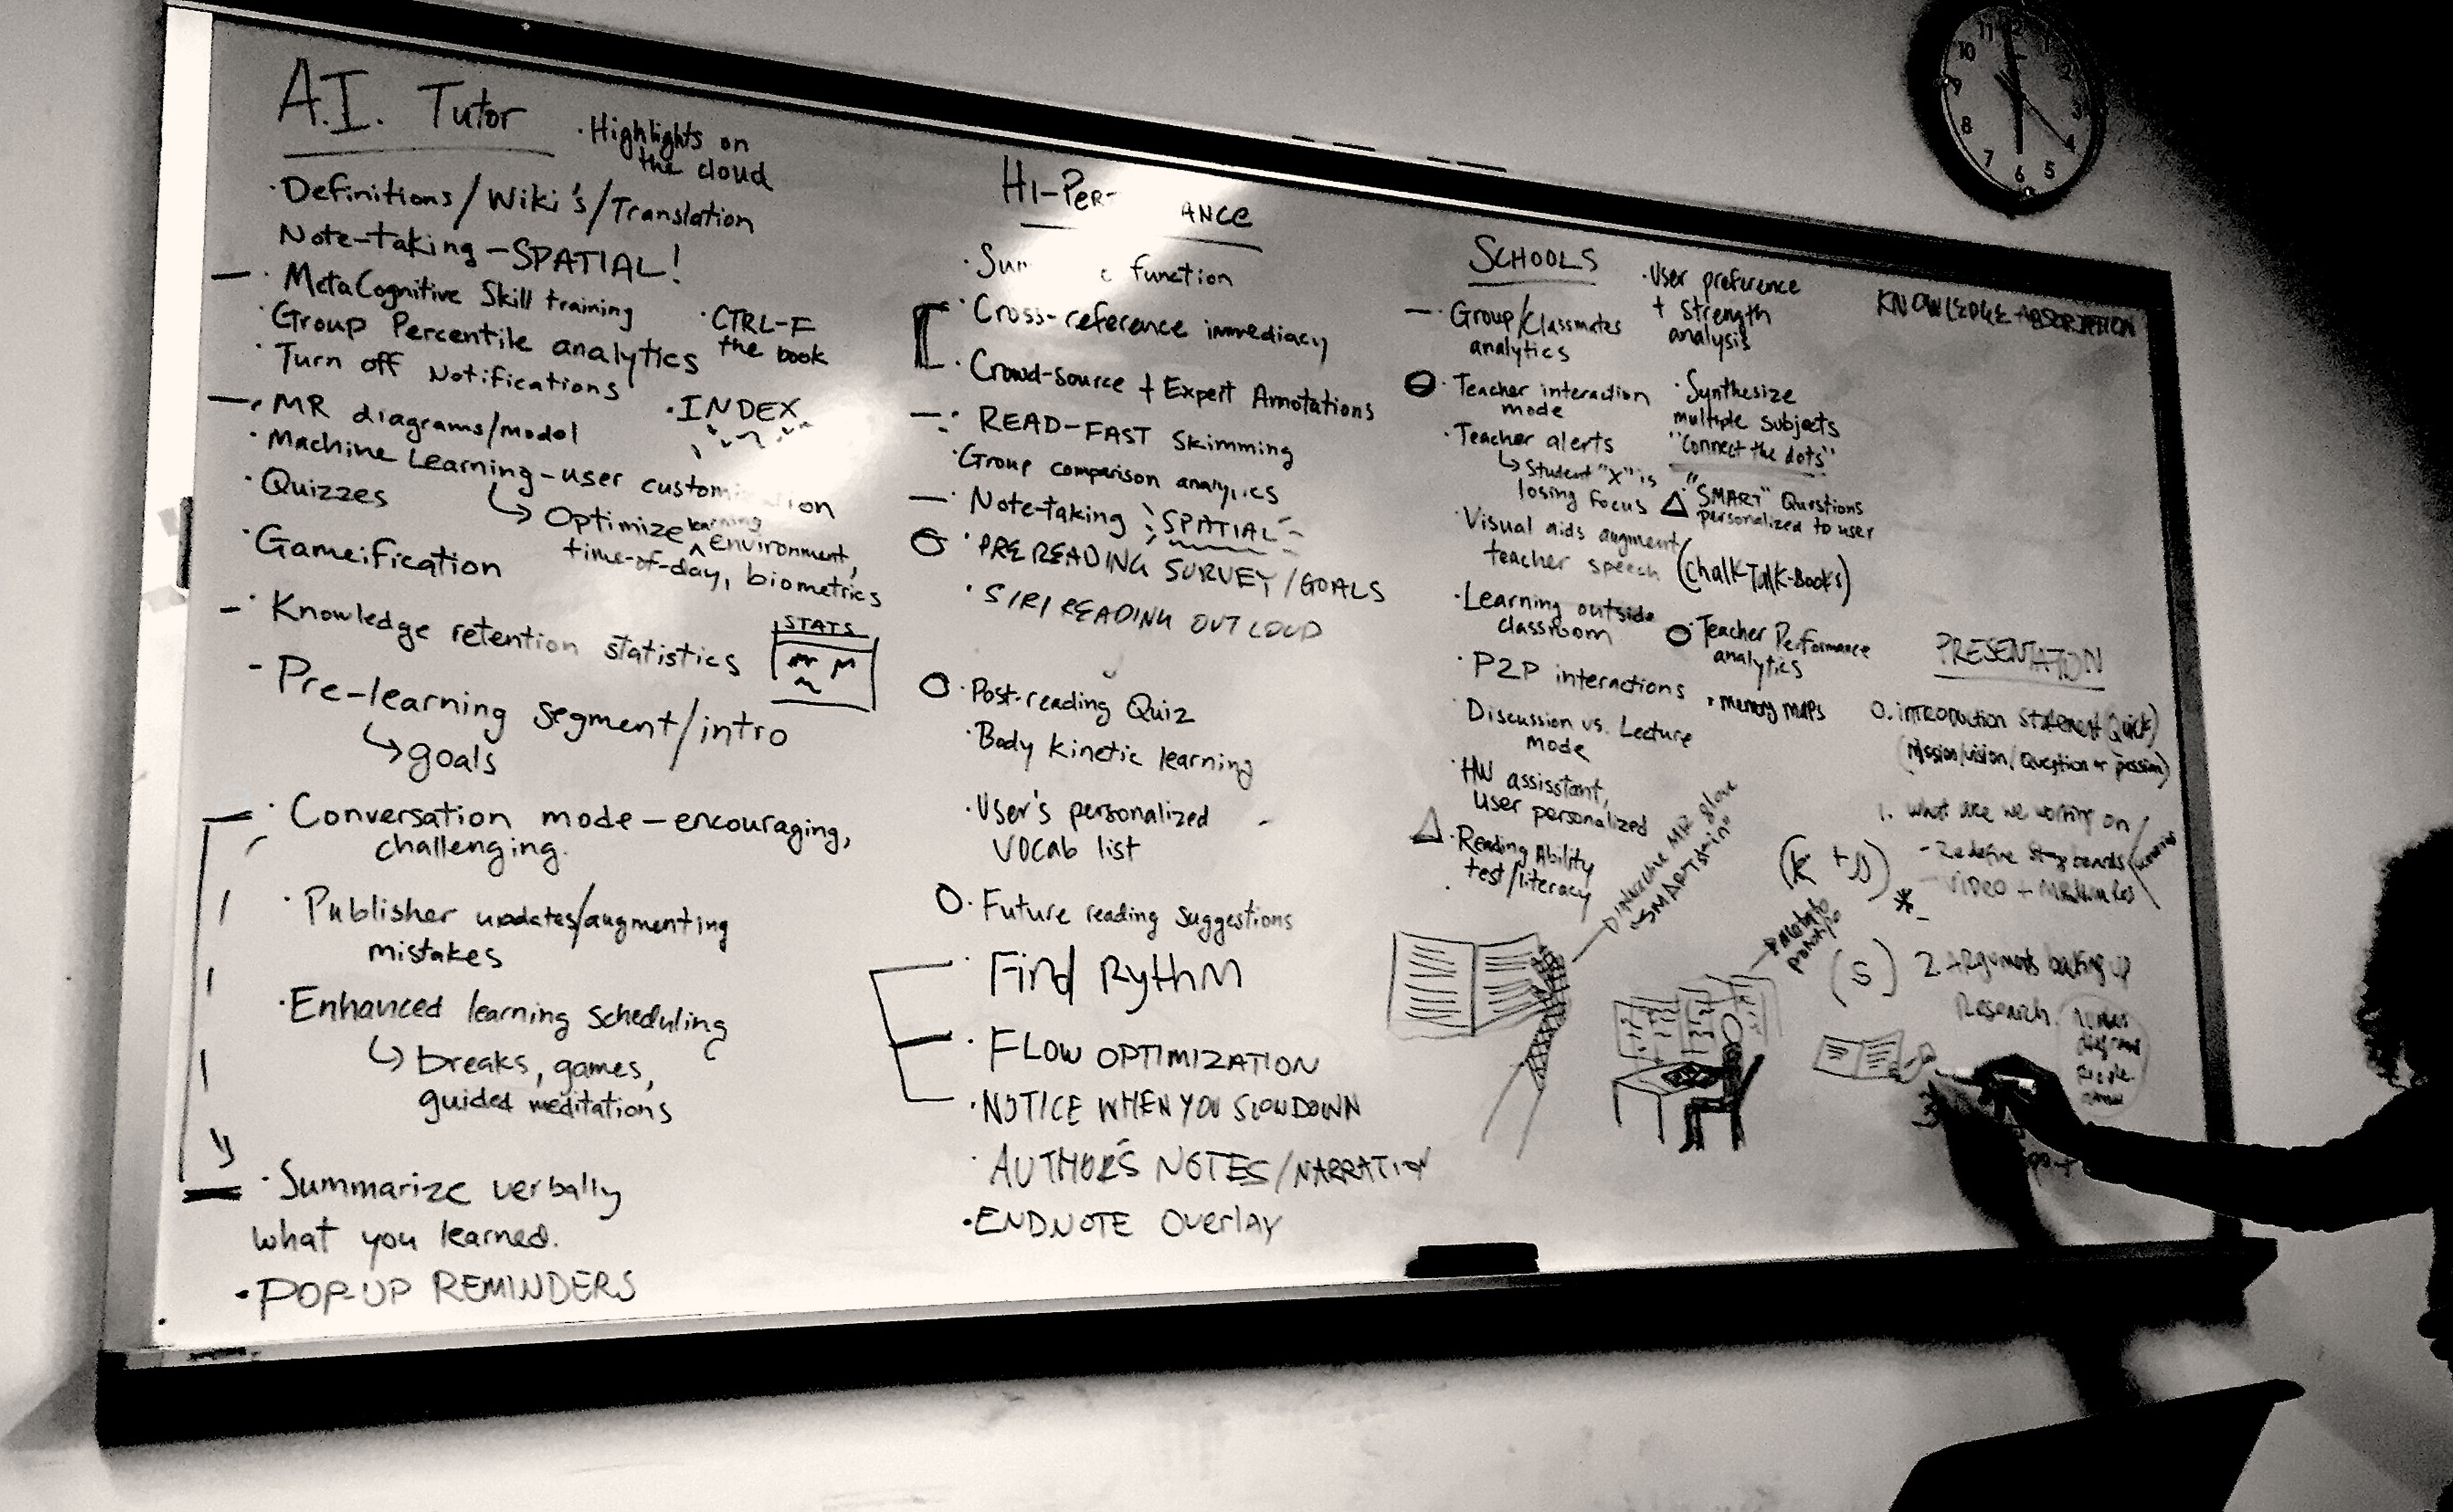 A.I. Tutor
· Highlights on
the cloud
· Definitions/Wiki's/Translation
Note-taking - SPATIAL!
- · MetaCognitive Skill training
· Group Percentile analytics
· CTRL-F
the book
· Turn off Notifications
- · MR diagrams/model
· INDEX
· Machine Learning - user
↳ Optimize learning environment,
time-of-day, biometrics
· Quizzes
· Gameification
- · Knowledge retention statistics
STATS
- Pre-learning segment/intro
↳ goals
- · Conversation mode - encouraging,
challenging.
· Publisher updates/augmenting
mistakes
· Enhanced learning scheduling
↳ breaks, games,
guided meditations
· Summarize verbally
what you learned.
· POP-UP REMINDERS
function
· Cross-reference immediacy
· Crowd-source + Expert Annotations
- · READ-FAST Skimming
· Group comparison analytics
- · Note-taking SPATIAL
· PREREADING SURVEY/GOALS
· SIRI READING OUT LOUD
O · Post-reading Quiz
· Body Kinetic learning
· User's personalized
vocab list
O · Future reading suggestions
· Find RythM
· FLOW OPTIMIZATION
· NOTICE WHEN YOU SLOWDOWN
· AUTHOR'S NOTES/NARRATION
· ENDNOTE Overlay
SCHOOLS
- · Group/Classmates
analytics
· Teacher interaction
mode
· Teacher alerts
↳ Student "X" is
losing focus
· Visual aids augment
teacher speech (Chalk-Talk-Books)
· Learning outside
classroom
· P2P interactions
· Discussion vs. Lecture
mode
· HW assisstant,
user personalized
△ · Reading Ability
test/literacy
· User preference
+ Strength
analysis
· Synthesize
multiple subjects
"Connect the dots"
△ · "SMART" Questions
personalized to user
O · Teacher Performance
analytics
· memory maps
MR glove
KNOWLEDGE ABSORPTION
PRESENTATION
0. INTRODUCTION STATEMENT (Quick)
(Mission/vision/Question or passion)
1. What are we working on
- Redefine
- VIDEO +
(S) 2 Arguments backing up
Research
11 12 1 2 3 4 5 6 7 8 9 10